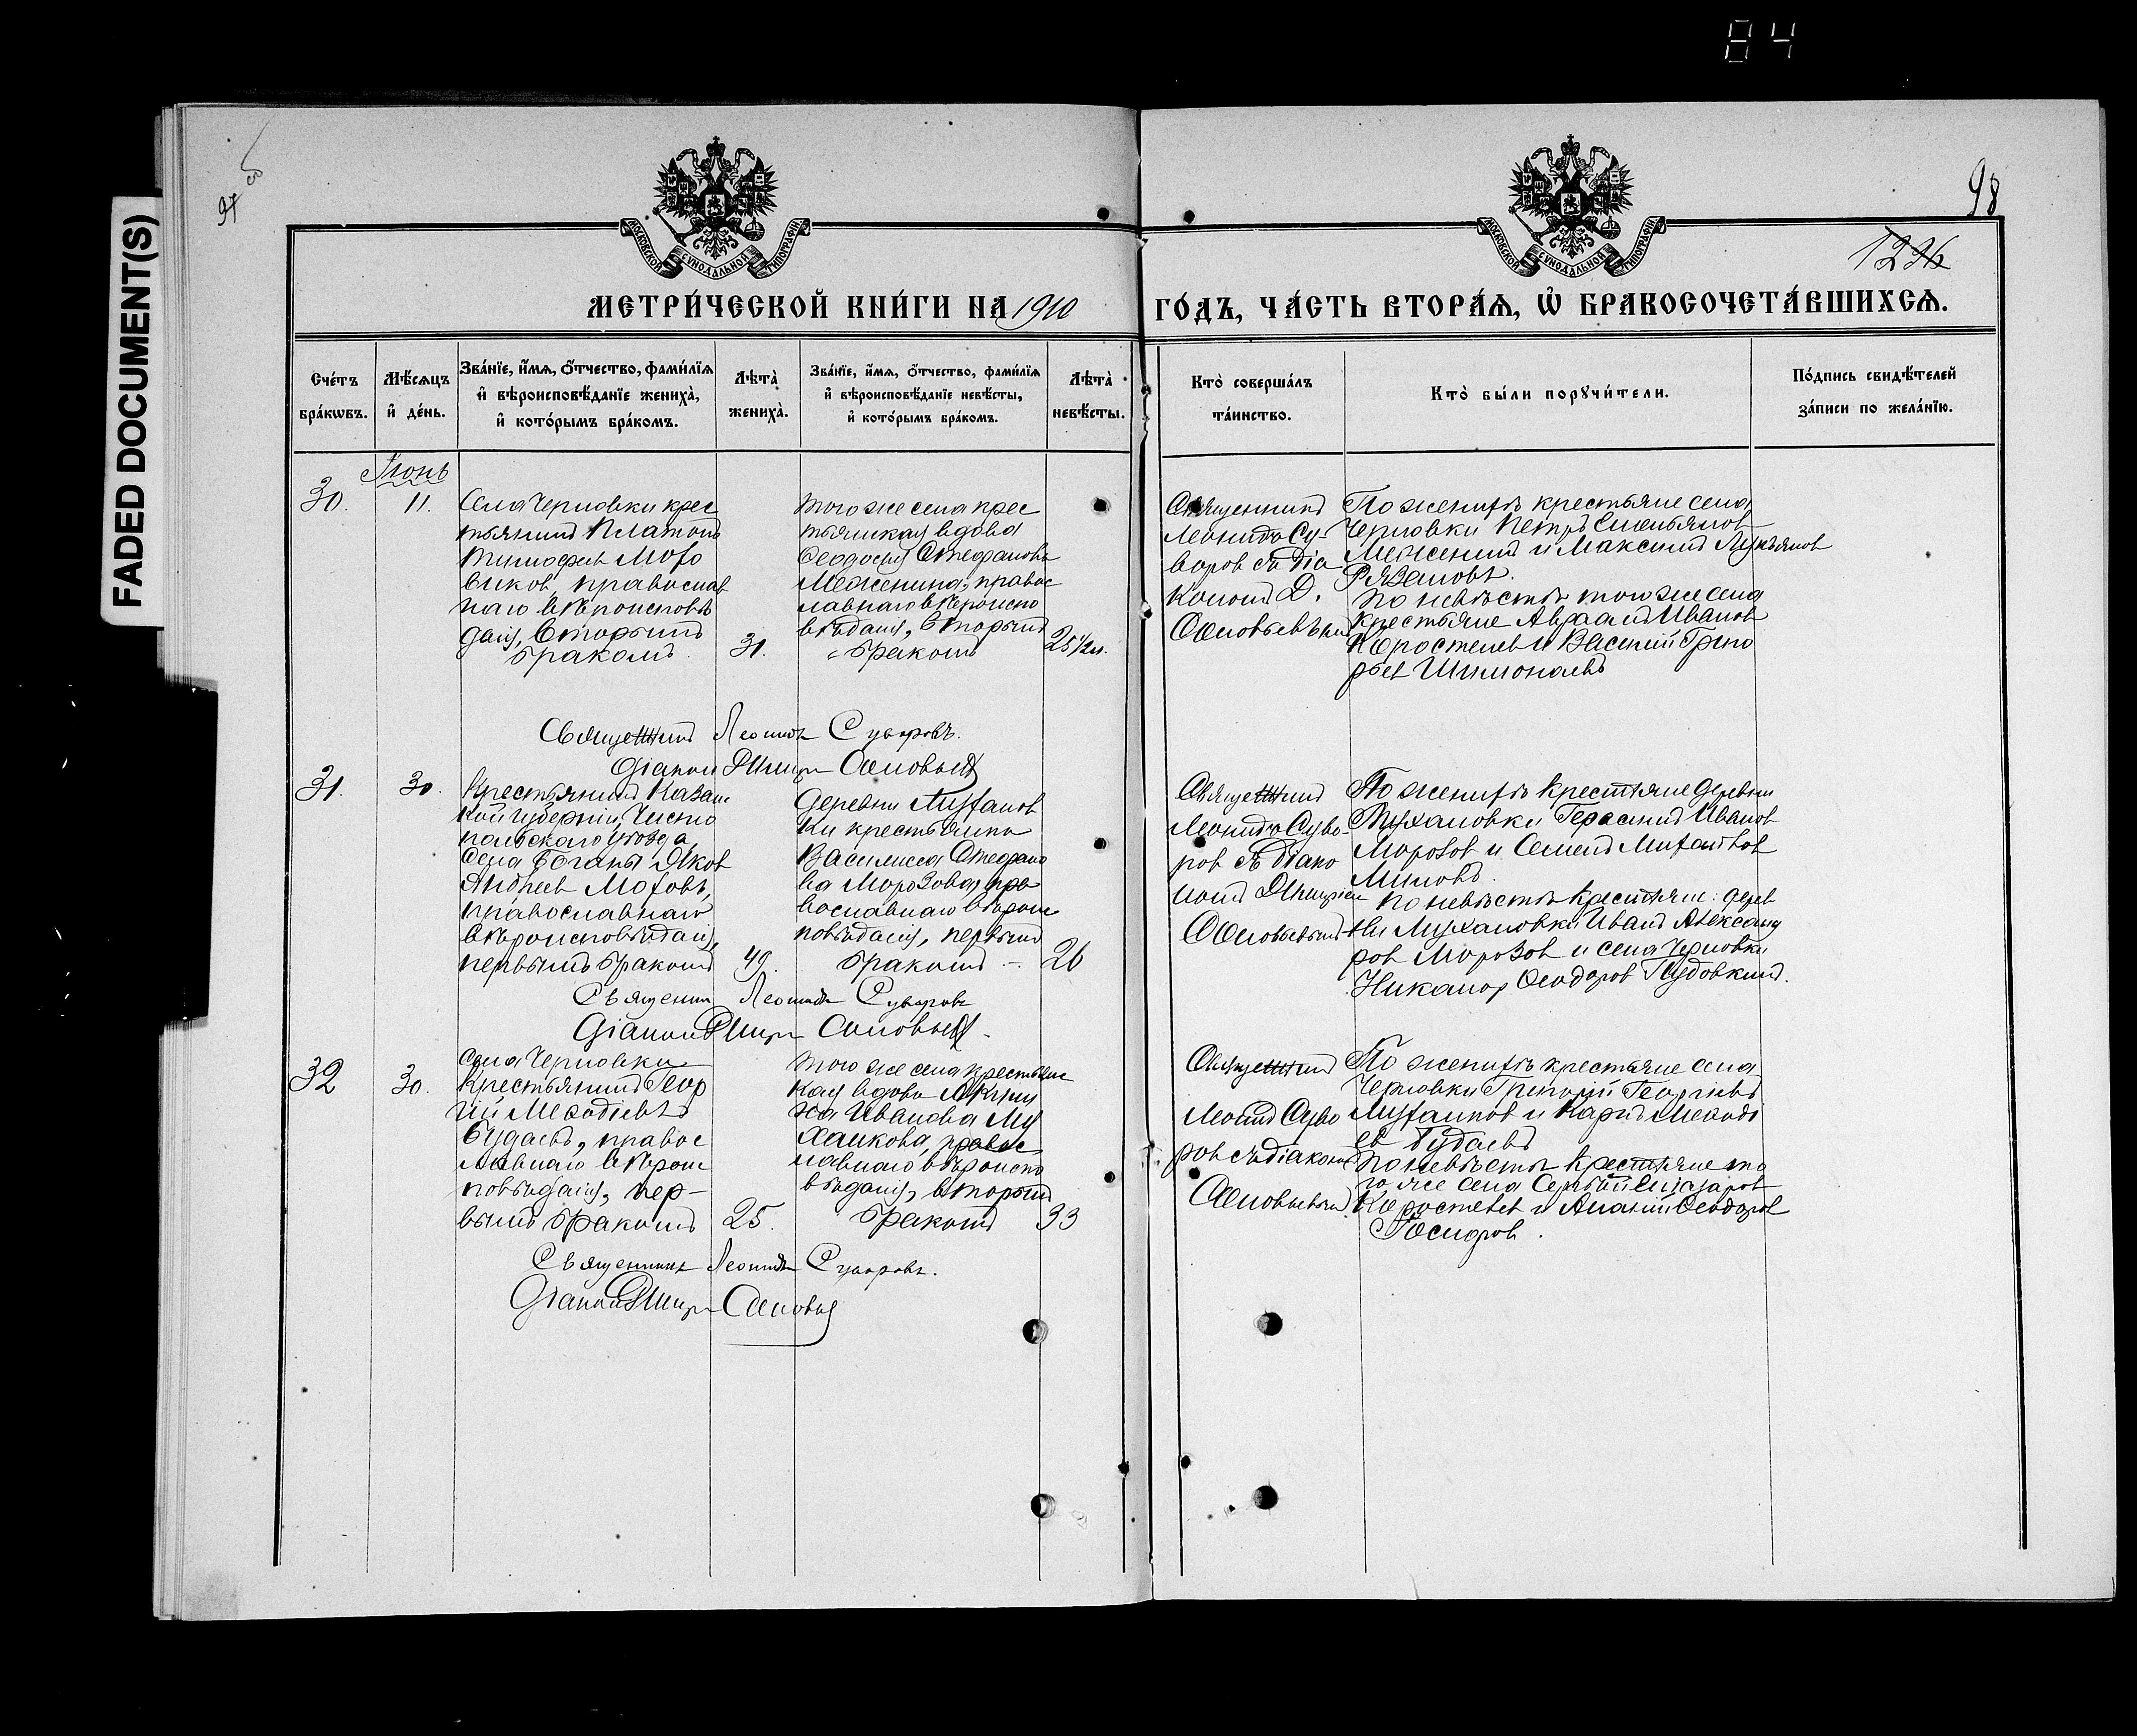 84
FADED DOCUMENT(S)
97
98
МОСКОВСКОЙ СУНОДАЛЬНОЙ ТИПОГРАФІИ.
МОСКОВСКОЙ СУНОДАЛЬНОЙ ТИПОГРАФІИ.
МЕТРИ́ЧЕСКОЙ КНИ́ГИ НА 1910 ГО́ДЪ, ЧА́СТЬ ВТОРА́Ѧ, Ѡ҆ БРАКОСОЧЕТА́ВШИХСѦ.
Сче́тъ бра́кѡвъ.
Мѣ́сѧцъ и҆ де́нь.
Зва́нїе, и҆́мѧ, ѻ҆́тчество, фами́лїѧ
и҆ вѣроисповѣ́данїе жениха̀,
и҆ кото́рымъ бра́комъ.
Лѣта̀ жениха̀.
Зва́нїе, и҆́мѧ, ѻ҆́тчество, фами́лїѧ
и҆ вѣроисповѣ́данїе невѣ́сты,
и҆ кото́рымъ бра́комъ.
Лѣта̀ невѣ́сты.
Кто̀ соверша́лъ
та́инство.
Кто̀ бы́ли порꙋчи́тели.
По́дпись свидѣ́телей
за́писи по жела́нїю.
Іюнь
30.
11.
Села Черновки крес
тьянинъ Платонъ
Тимофеев Мохо
виков, православ
наго вѣроисповѣ
данія, вторымъ
бракомъ.
31.
того же села крес
тьянская вдова
Ѳеодосія Стефанова
Меженина, правос
лавнаго вѣроиспо
вѣданія, вторымъ
бракомъ
25 1/2 л.
Священникъ
Леонидъ Су-
воров съ діа
кономъ Д.
Соловьевымъ
По женихѣ крестьяне села
Черновки Петръ Емельянов
Меженинъ и Максимъ Лукьянов
Рязановъ.
по невѣстѣ того же села
крестьяне Авраамъ Иванов
Коростелев и Василий Григо
рьев
Священникъ Леонидъ Суворовъ.
Діаконъ Дмитрій Соловьевъ
31.
30.
Крестьянинъ Казанс
кой губерніи, Чисто
польскаго уѣзда,
села Яков
Андреев Моховъ,
православнаго
вѣроисповѣданія,
первымъ бракомъ
49.
деревни Лухановк
ки крестьянка
Василиса Стефано
ва Морозова, пра
вославнаго вѣроис
повѣданія, первымъ
бракомъ
26
Священникъ
Леонидъ Суво-
ров съ діако
номъ Дмитріем
Соловьевымъ
По женихѣ крестьяне деревни
Лухановки Герасимъ Иванов
Морозов и Семенъ Михайлов
по невѣстѣ крестьяне: дерев
ни Лухановки Иванъ Александ
ров Морозов и села Черновки
Никанор Ѳеодоров Пудовкинъ.
Священникъ Леонидъ Суворовъ
Діаконъ Дмитрій Соловьевъ
32
30.
Села Черновки
крестьянинъ Геор
гій Меѳодіевъ
Будаевъ, правос
лавнаго вѣроис
повѣданія, пер-
вымъ бракомъ
25.
того же села крестьянс
кая вдова
Иванова
правос
лавнаго вѣроиспо
вѣданія, вторымъ
бракомъ
33
Священникъ
Леонидъ Суво
ров съ діаконом
Соловьевымъ
По женихѣ крестьяне села
Черновки Григорій Георгіевъ
и Карпъ Меѳоді
ев Будаевъ
по невѣстѣ крестьяне то
го же села Сергѣй
Коростелев и Ананій Ѳеодоров
Священникъ Леонидъ Суворовъ.
Діаконъ Дмитрій Соловьевъ